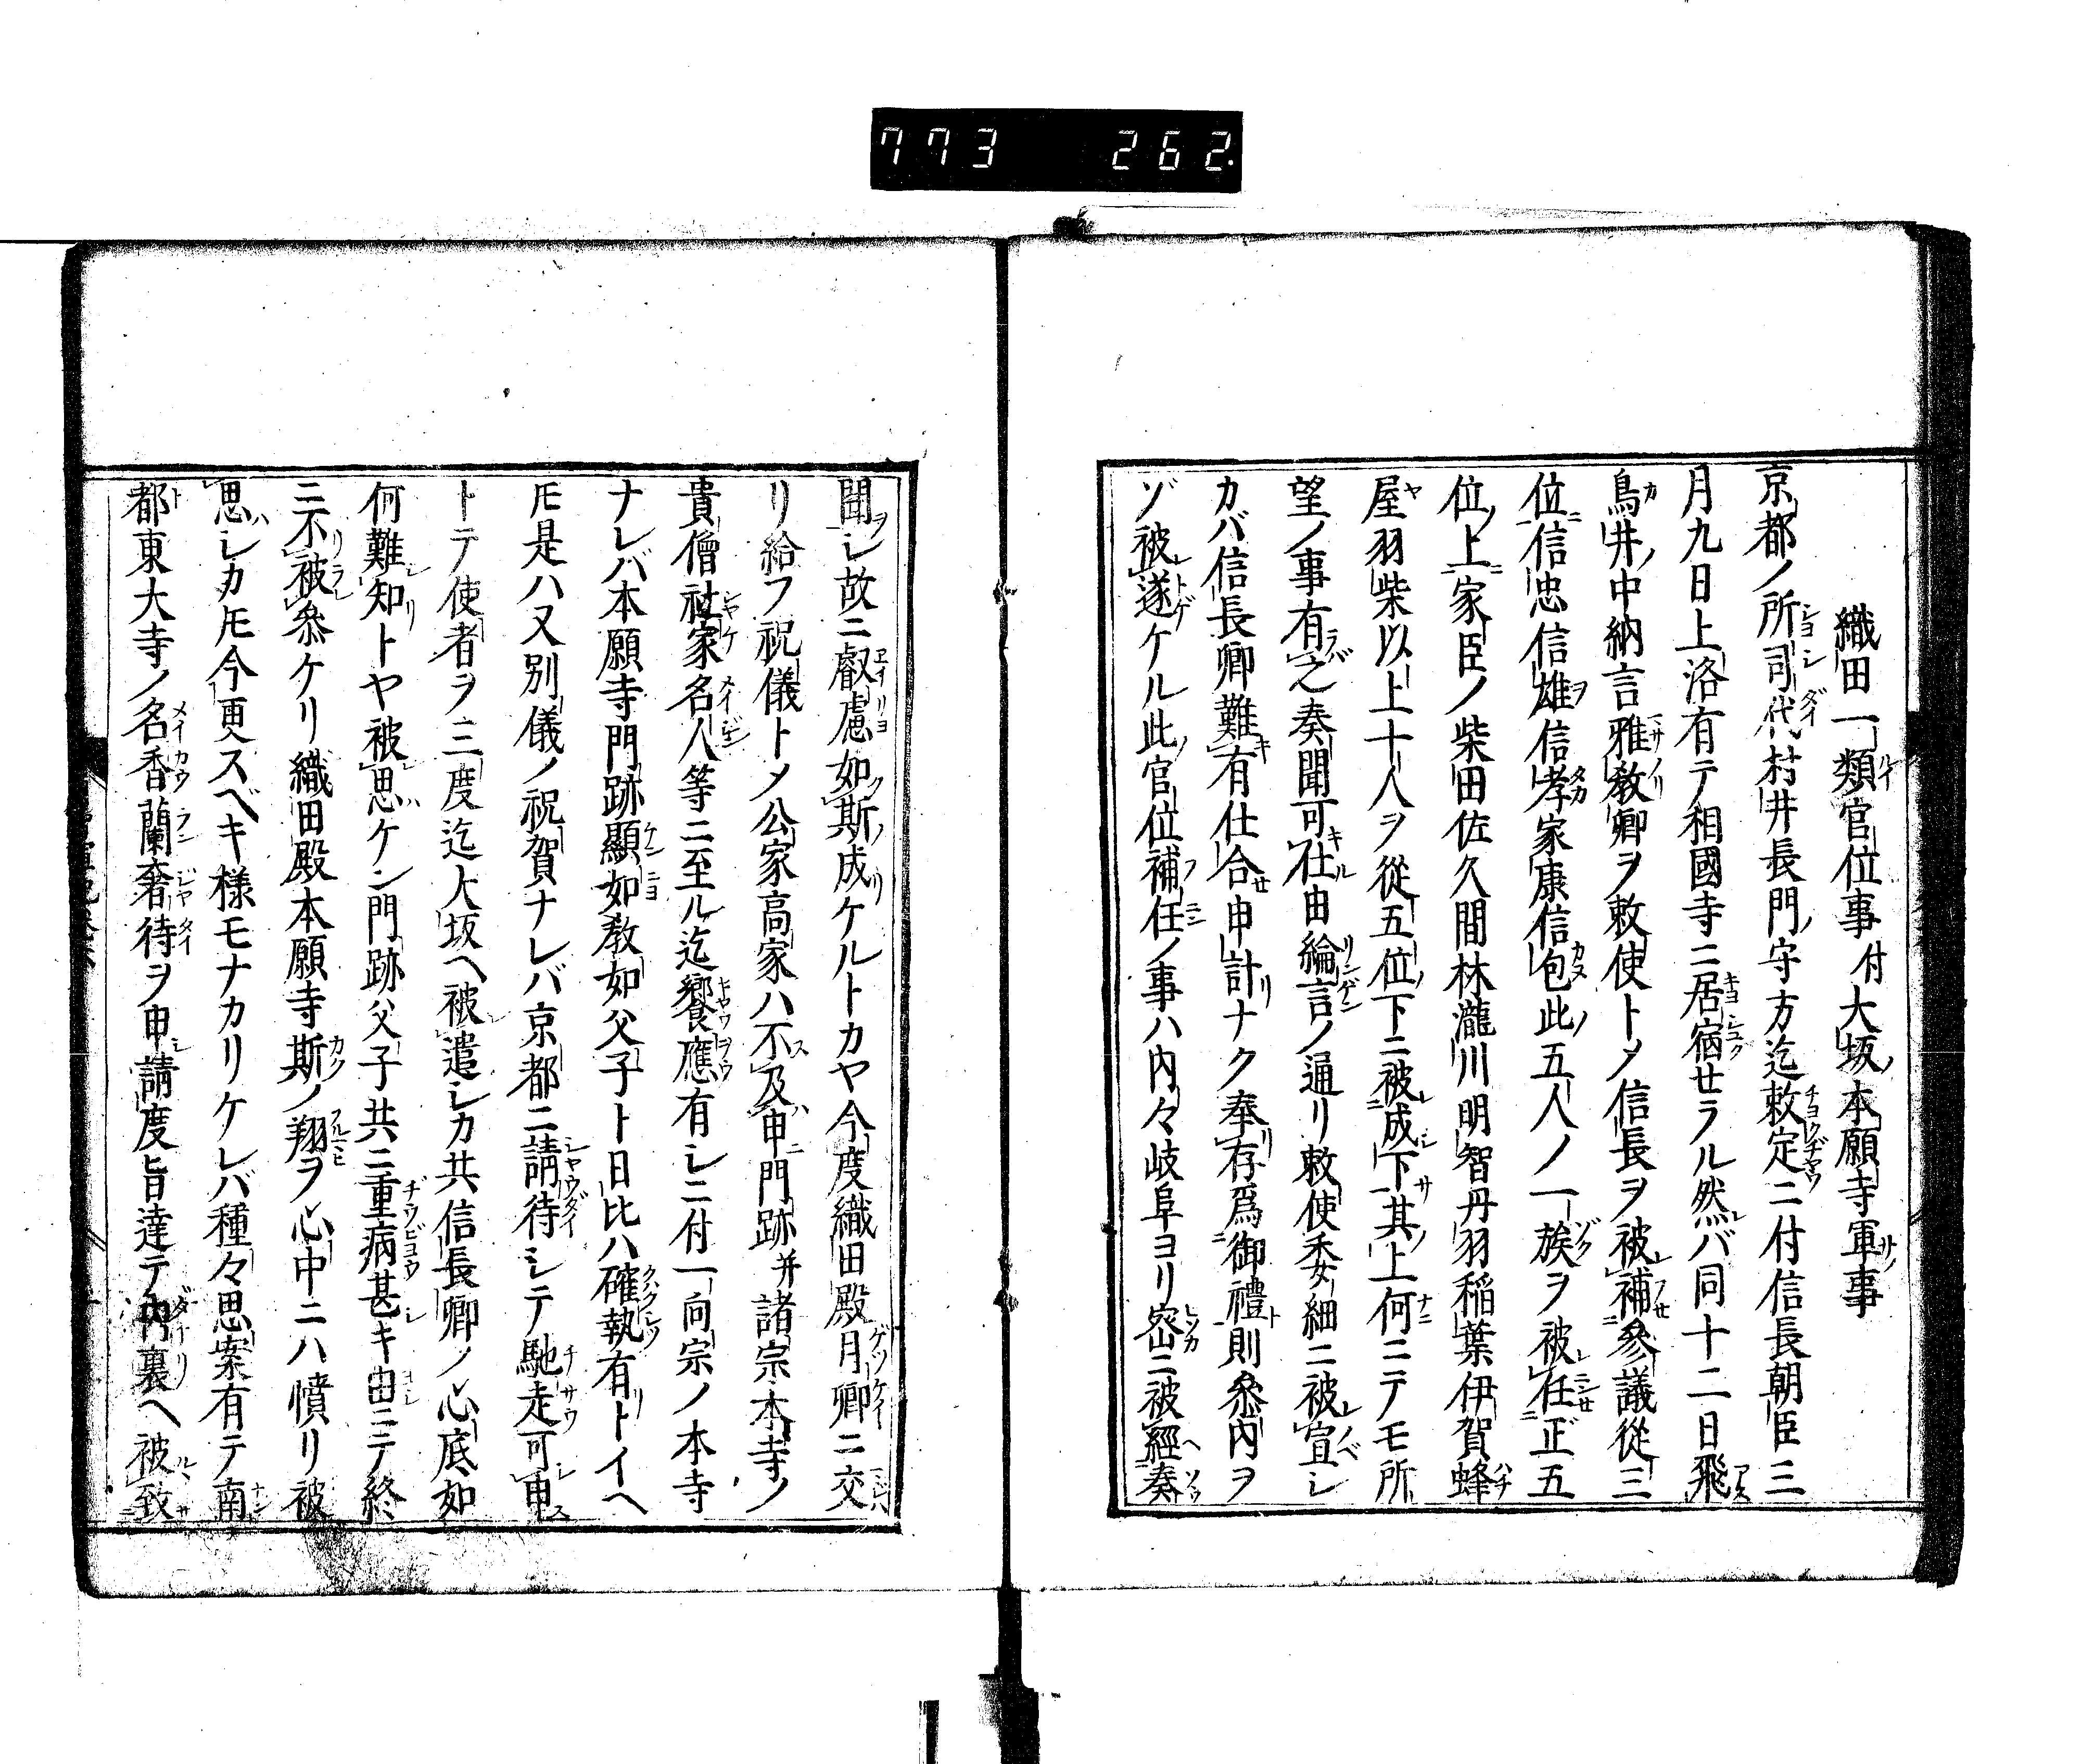 773 262
織田一類官位事付大坂本願寺軍事
京都ノ所司代村井長門守方迄敕定ニ付信長朝臣三
月九日上洛有テ相國寺ニ居宿セラル然バ同十二日飛
鳥井中納言雅敎卿ヲ敕使トメ信長ヲ被補參議從三
位信忠信雄信孝家康信包此五人ノ一族ヲ被任正五
位上家臣ノ柴田佐久間林瀧川明智丹羽稲葉伊賀蜂
屋羽柴以上十人ヲ從五位下ニ被成下其上何ニテモ所
望ノ事有之奏聞可仕由綸言ノ通リ敕使委細ニ被宣シ
カバ信長卿難有仕合申計ナク奉存爲御禮則叅内ヲ
ゾ被遂ケル此官位補任ノ事ハ内々岐阜ヨリ密ニ被經奏
聞シ故ニ叡慮如斯成ケルトカヤ今度織田殿月卿ニ交
リ給フ祝儀トメ公家高家ハ不及申門跡并諸宗本寺ノ
貴僧社家名人等ニ至ル迄饗應有シニ付一向宗ノ本寺
ナレバ本願寺門跡顯如敎如父子ト日比ハ確執有トイヘ
𪜈是ハ又別儀ノ祝賀ナレバ京都ニ請待シテ馳走可申
トテ使者ヲ三度迄大坂ヘ被遣シカ共信長卿ノ心底如
何難知トヤ被思ケン門跡父子共ニ重病甚キ由ニテ終
ニ不被叅ケリ織田殿本願寺斯ノ翔ヲ心中ニハ憤リ被
思シカ𪜈今更スベキ様モナカリケレバ種々思案有テ南
都東大寺ノ名香蘭奢待ヲ申請度旨達テ内裏ヘ被致